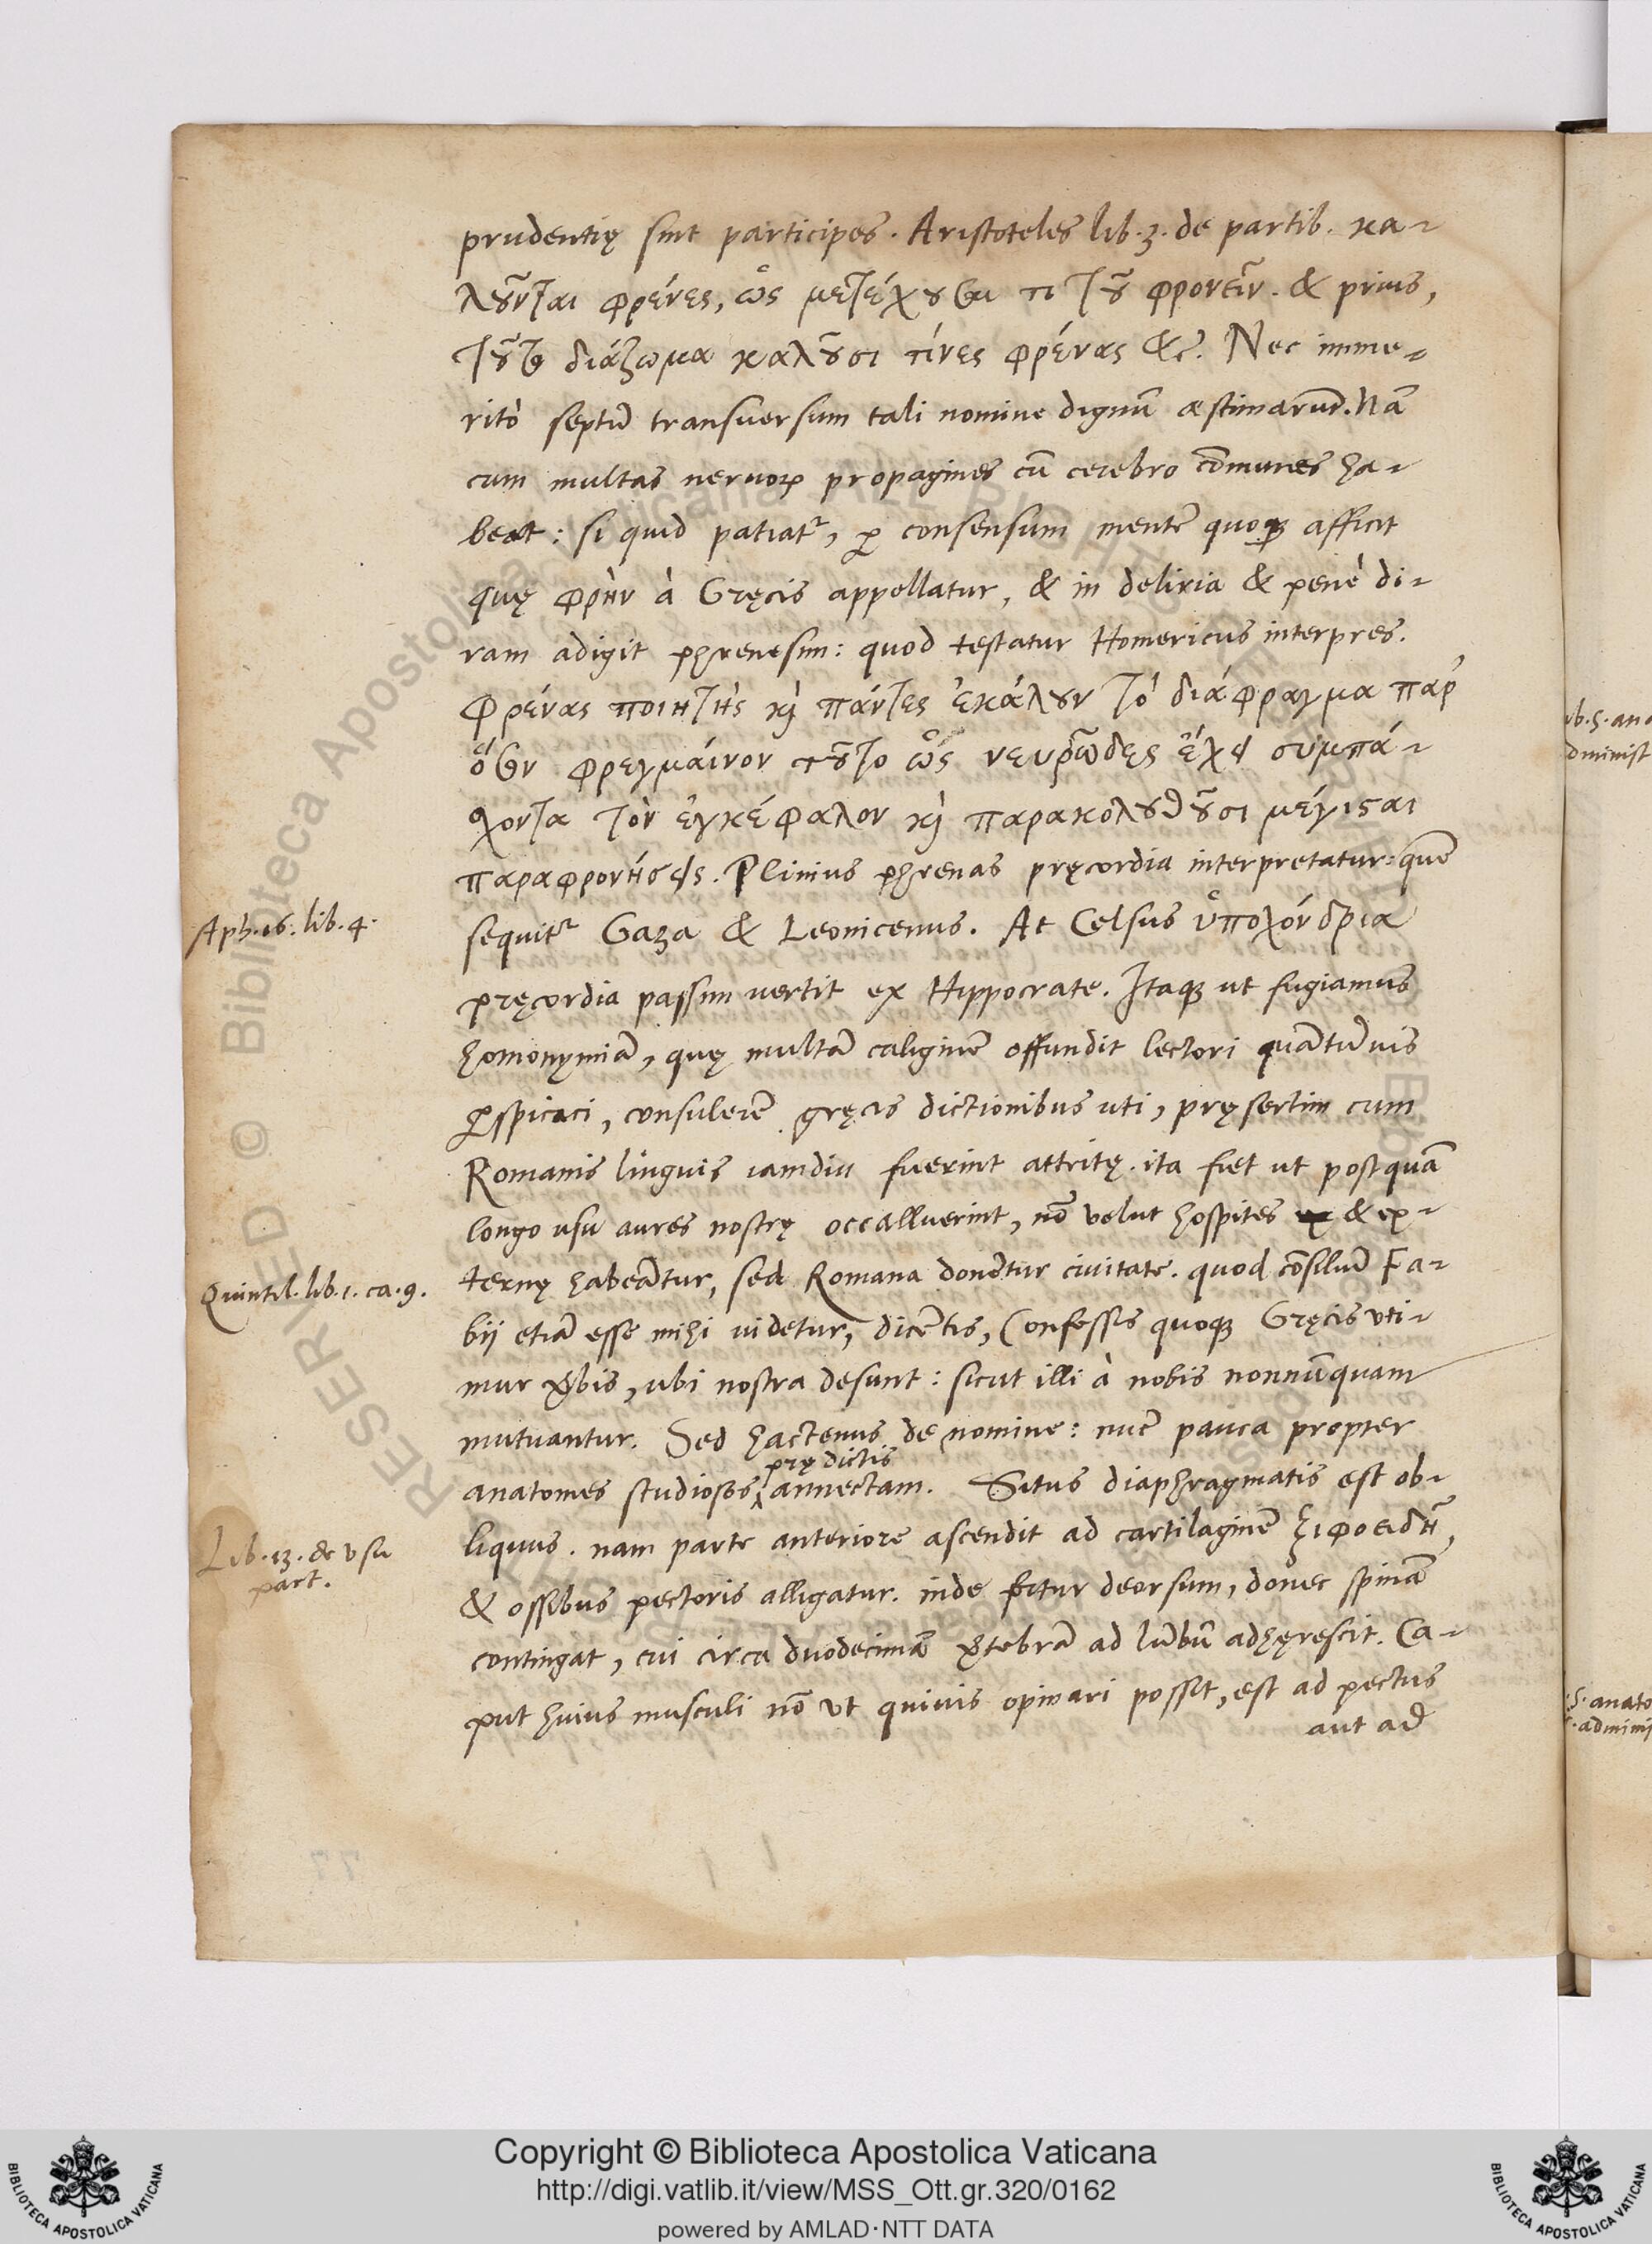 prudentię sint participes. Aristoteles lib. 3. de partib. κα-
λοῦνται φρένες, ὡς μετέχουσαι τι τοῦ φρονεῖν. & prius,
τοῦτο διάζωμα καλοῦσι τίνες φρένας &c. Nec imme-
ritò septũ transuersum tali nomine dignũ æstimarũt. Nã
cum multas neruorꝝ propagines cũ cerebro cõmunes ha-
beat: si quid patiatʳ, ꝑ consensum mentẽ quoqꝫ afficit
quę φρὴν à Gręcis appellatur, & in deliria & penè di-
ram adigit phrenesim: quod testatur Homericus interpres.
Φρένας ποιητὴς καὶ πάντες ἐκάλουν τὸ διάφραγμα παρ'
ὅσον φρεγμαίνον τοῦτο ὡς νευρῶδες ἔχει συμπά-
χοντα τὸν ἐγκέφαλον καὶ παρακολουθοῦσι μέγισται
παραφρονήσεις. Plinius phrenas pręcordia interpretatur: quẽ
sequitʳ Gaza & Leonicenus. At Celsus ὑποχόνδρια
pręcordia passim uertit ex Hippocrate. Itaqꝫ ut fugiamus
homonymiã, quę multã caliginẽ offundit lectori quãtũuis
ꝑspicaci, consulerẽ gręcis dictionibus uti, pręsertim cum
Romanis linguis iamdiu fuerint attritę. ita fiet ut postquã
longo usu aures nostrę occalluerint, nõ velut hospites & ex-
Aph. 16. lib. 4.
ternę habeãtur, sed Romana donẽtur ciuitate. quod cõsiliũ Fa-
Quintil. lib. 1. ca. 9.
bij etiã esse mihi uidetur, dicẽtis, Confessis quoqꝫ Gręcis uti-
mur ꝟbis, ubi nostra desunt: sicut illi à nobis nonnũquam
mutuantur. Sed hactenus de nomine: nũc pauca propter
prędictis
anatomes studiosos annectam. Situs diaphragmatis est ob-
liquus. nam parte anteriore ascendit ad cartilaginẽ ξιφοειδῆ,
Lib. 13. de vsu
part.
& ossibus pectoris alligatur. inde fertur deorsum, donec spinã
contingat, cui circa duodecimã ꝟtebrã ad lũbũ adhęrescit. Ca-
put huius musculi nõ vt quiuis opinari posset, est ad pectus
aut ad
Copyright © Biblioteca Apostolica Vaticana
http://digi.vatlib.it/view/MSS_Ott.gr.320/0162
powered by AMLAD·NTT DATA